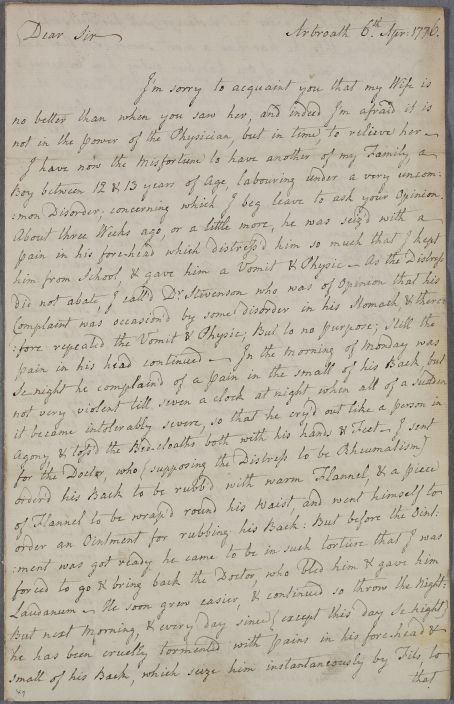 Dear Sir
Arbroath 6th Apr: 1776.
I'm sorry to acquaint you that my Wife is
no better than when you saw her, and indeed I'm afraid it is
not in the power of the Physician but in time, to relieve her —
I have now the Misfortune to have another of my Family, a
Boy between 12 & 13 years of Age, labouring under a very uncom:
:mon Disorder; concerning which I beg leave to ask your Opinion.
About three Weeks ago, or a little more, he was seiz'd with a
pain in his fore-head which distress'd him so much that I kept
him from School, & gave him a Vomit & Physic — As the Distress
did not abate I call'd Dr. Stevenson who was of Opinion that his
Complaint was occasion'd by some disorder in his Stomach, & there:
:fore repeated the Vomit & Physic; But to no purpose; still the
pain in his head continued — In the Morning of Monday was
Se-night he complain'd of a pain in the small of his Back but
not very violent till seven a clock at night when all of a Sudden
it became intolerably severe, so that he cry'd out like a person in
Agony & toss'd the Bed-cloaths both with his hands & Feet — I sent
for the Doctor, who (supposing the Distress to be Rheumatism)
order'd his Back to be rubb'd with warm Flannel, & a piece
of Flannel to be wrap'd round his Waist, and went himself to
order an Ointment for rubbing his Back: But before the Oint:
:ment was got ready he came to be in such torture that I was
forced to go & bring back the Doctor, who Bled him & gave him
Laudanum — He soon grew easier, & continued so throw the Night:
But next Morning, & every day since, except this day Se-night
he has been cruelly tormented with pains in his fore-head &
small of his Back, which seize him instantaneously by Fits, to
that